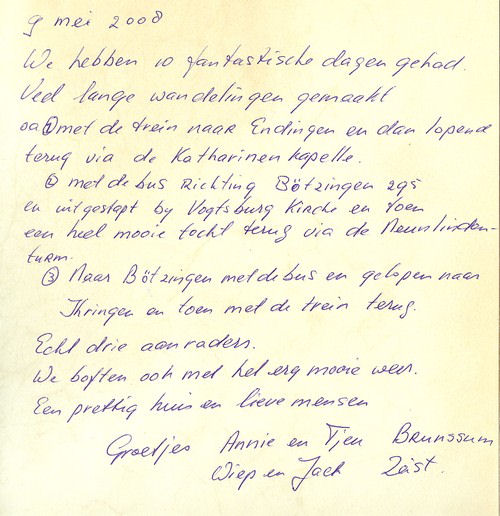 9 mei 2008
We hebben 10 fantastische dagen gehad.
Veel lange wandelingen gemaakt
oa ① met de trein naar Endingen en dan lopend
terug via de Katharinenkapelle.
② met de bus Richting Bötzingen 295
en uitgestapt by Vogtsburg Kirche en toen
een heel mooie tocht terug via de Neunlinden-
turm.
③ Naar Bötzingen met de bus en gelopen naar
Ihringen en toen met de trein terug.
Echt drie aanraders.
We boften ook met het erg mooie weer.
Een prettig huis en lieve mensen
Groetjes Annie en Tjeu Brunssum
Wiep en Jack Zeist.